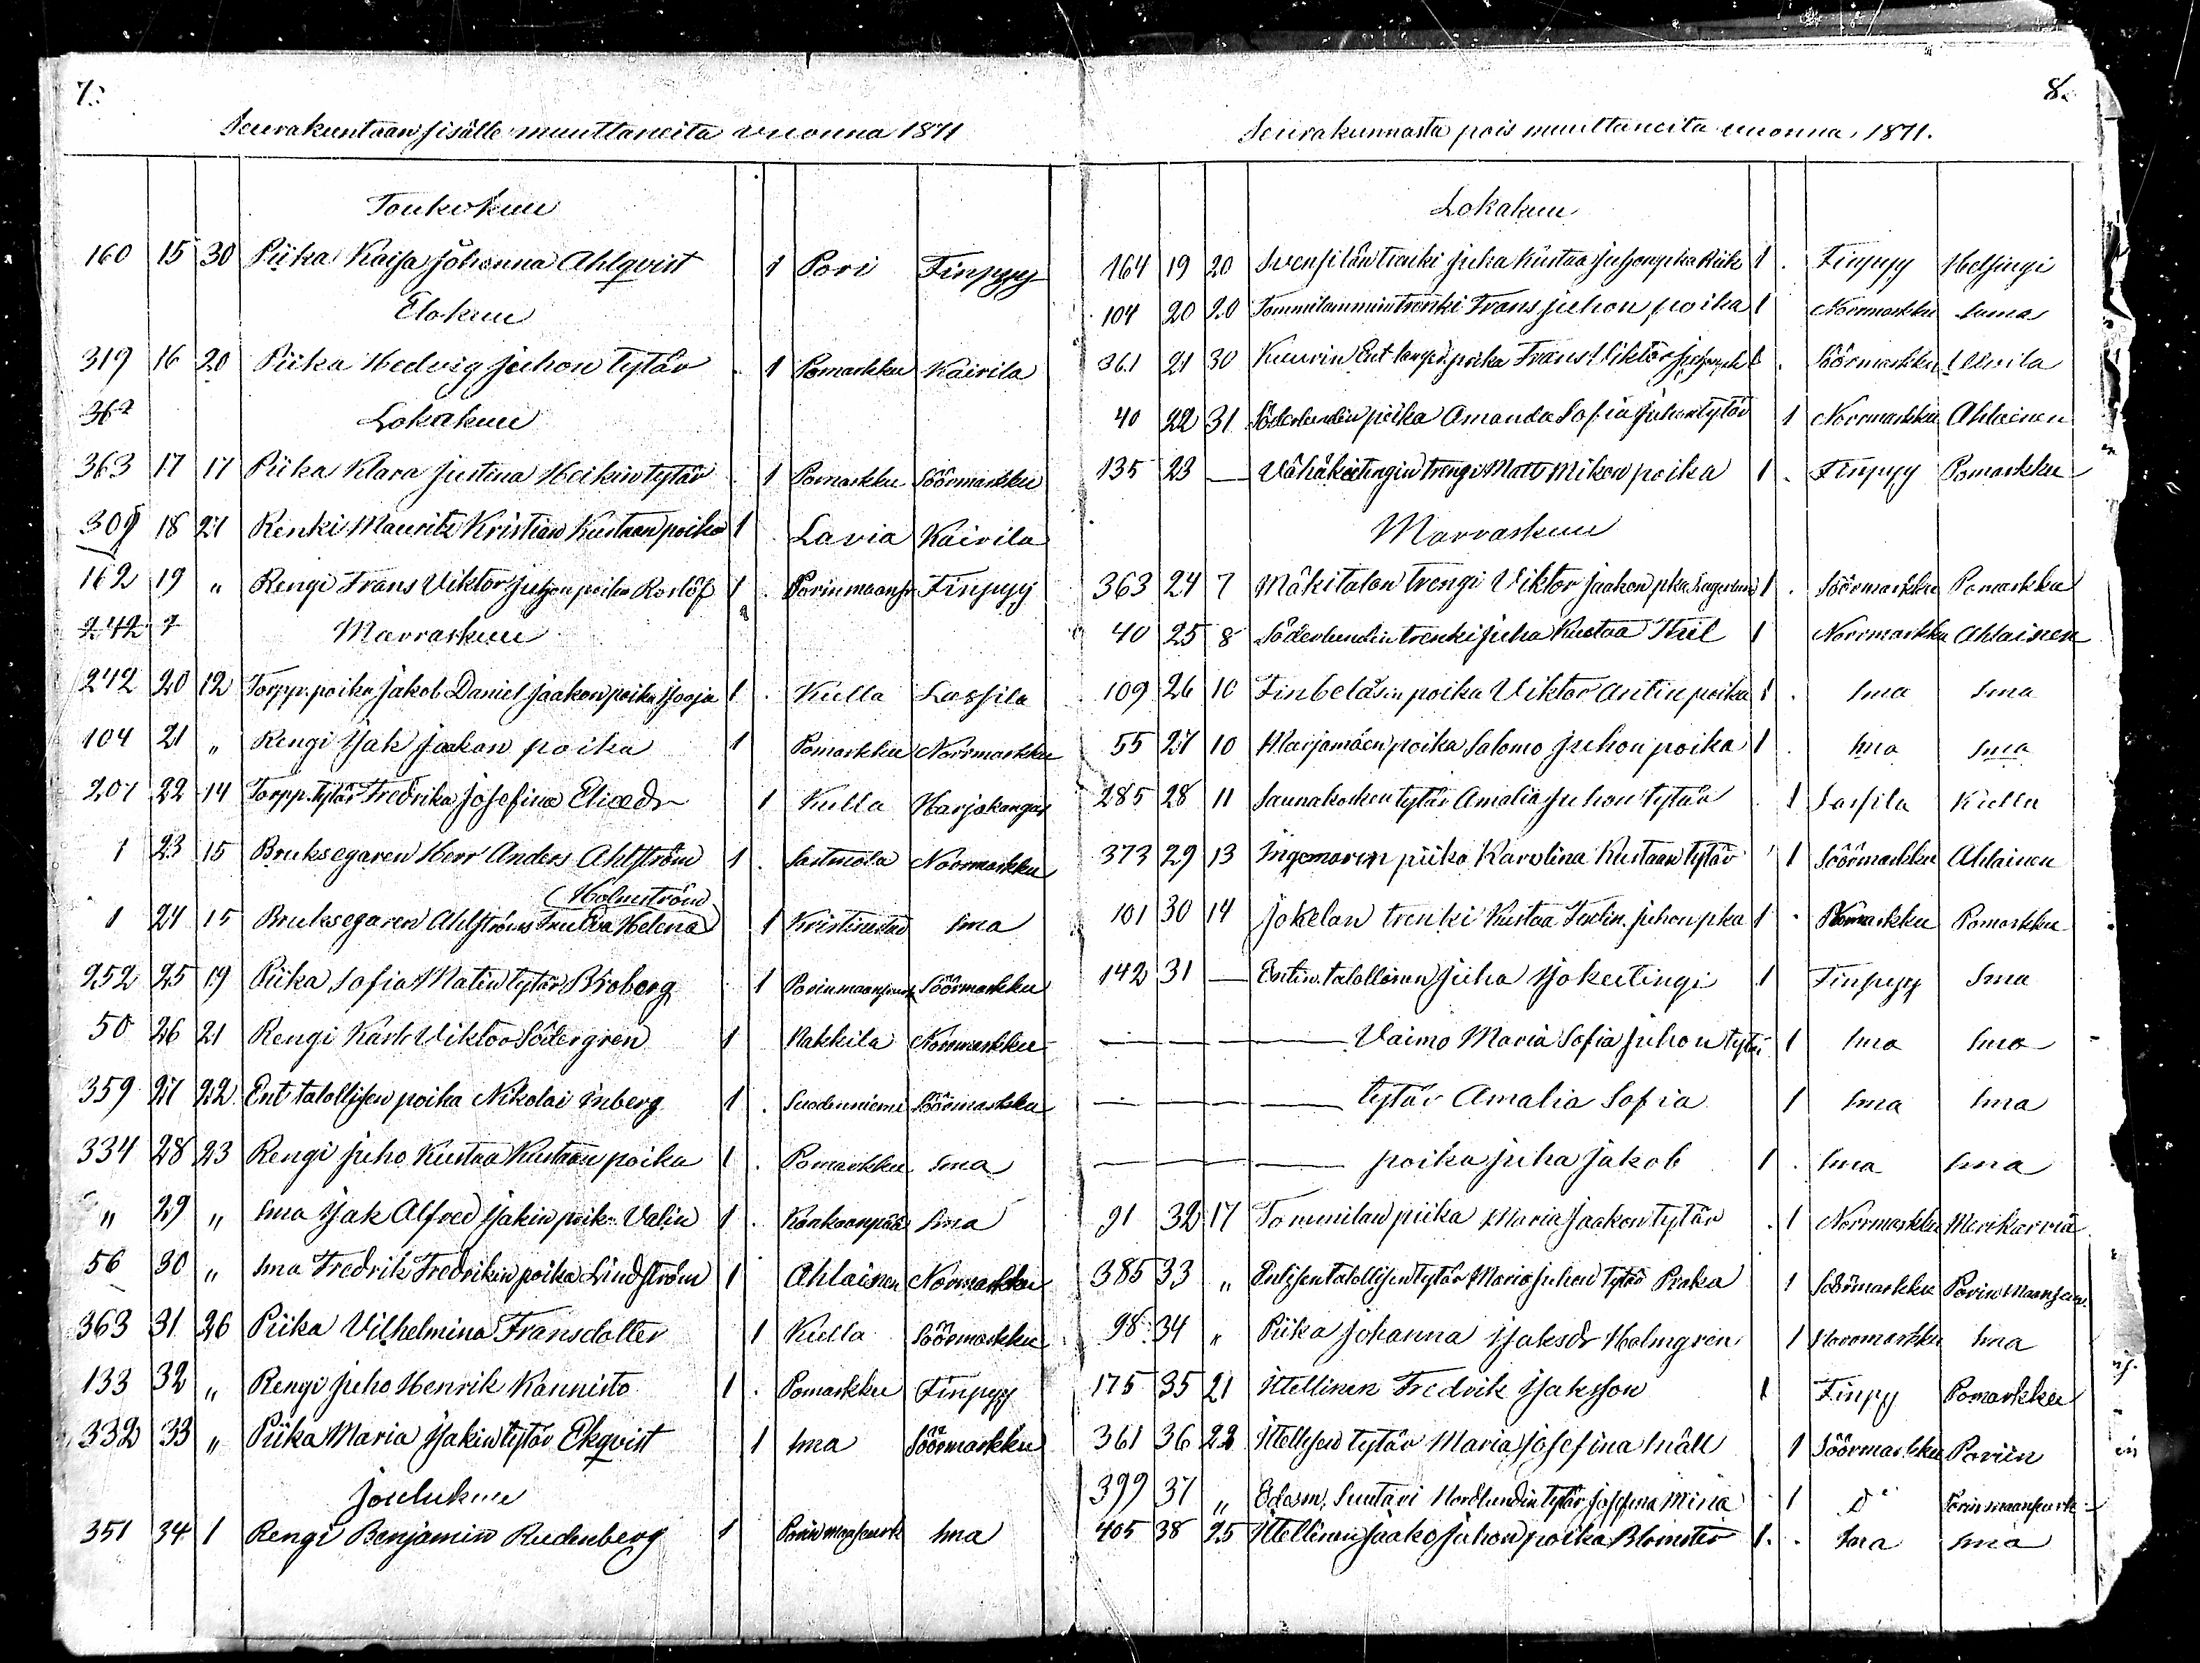 7.
Seurakuntaan sisälle muuttaneita vuonna 1871
Toukokuu
160 15 30 Piika Kaisa Johanna Ahlqvist 1 Pori Finpyy
Elokuu
319 16 20 Piika Hedvig Juhon tytär 1 Pomarkku Kairila
362 Lokakuu
363 17 17 Piika Klara Justina Heikin tytär 1 Pomarkku Söörmarkku
309 18 27 Renki Mauritz Kristian Kustaan poika 1 Lavia Kairila
162 19 " Rengi Frans Viktor Juhon poika Roslöf 1 Porinmaans Finpyy
242 7 Marraskuu
242 20 12 Torpp. poika Jakob Daniel Jaakon poika 1 Kulla Lassila
104 21 " Rengi Isak Jaakon poika 1 Pomarkku Norrmarkku
207 22 14 Torpp. tytär Fredrika Josefina Eliædr 1 Kulla Harjakangas
1 23 15 Bruksegaren Herr Anders Ahlström 1 Sastmola Norrmarkku
Holmström
1 24 15 Bruksegaren Ahlströms Fru Eva Helena 1 Kristinestad Sma
252 25 19 Piika Sofia Matin tytär Broberg 1 Porinmaanseurk Söörmarkku
50 26 21 Rengi Karl Viktor Södergren 1 Nakkila Norrmarkku
359 27 22 Ent talollisen poika Nikolai Inberg 1 Suodenniemi Söörmarkku
334 28 23 Rengi Juho Kustaa Kustaan poika 1 Pomarkku Sma
" 29 " Sma Isak Alfred Isakin poik. Valin 1 Kankaanpää Sma
56 30 " Sma Fredrik Fredrikin poika Lindström 1 Ahlainen Norrmarkku
363 31 26 Piika Vilhelmina Fransdotter 1 Kulla Söörmarkku
133 32 " Rengi Juho Henrik Kannisto 1 Pomarkku Finpyy
332 33 " Piika Maria Isakin tytär Ekqvist 1 Sma Söörmarkku
Joulukuu
351 34 1 Rengi Benjamin Rudenberg 1 Porin maaseurk Sma
8.
Seurakunnasta pois muuttaneita vuonna 1871.
Lokakuu
164 19 20 trenki Juha Kustaa Juhonpika 1 Finpyy Helsingi
104 20 20 trenki Frans Juhon poika 1 Norrmarkku Sama
361 21 30 Kuurin Ent poika Frans Viktor 1 Söörmarkku Ulvila
40 22 31 Söderlundin piika Amanda Sofia Juhon tytär 1 Norrmarkku Ahlainen
135 23 — Vähäkeitingin trengi Matts Mikon poika 1 Finpyy Pomarkku
Marraskuu
363 24 7 Mäkitalon trengi Viktor Jaakon pka 1 Söörmarkku Pomarkku
40 25 8 Söderlundin trenki Juha Kustaa 1 Norrmarkku Ahlainen
109 26 10 poika Viktor Antin poika 1 Sma Sma
55 27 10 Marjamäen poika Salomo Juhon poika 1 Sma Sma
285 28 11 Saunakosken tytär Amalia Juhon tytär 1 Lassila Kulla
373 29 13 Ingemaren piika Karolina Kustaan tytär 1 Söörmarkku Ahlainen
101 30 14 Jokelan trenki Kustaa Juhonpka 1 Pomarkku
142 31 — Entin. talollinen Juha Isokeitingi 1 Finpyy Sma
— — — — Vaimo Maria Sofia Juhon tytär 1 Sma Sma
— — — — tytär Amalia Sofia 1 Sma Sma
— — — — poika Juha Jakob 1 Sma Sma
91 32 17 Tommilan piika Maria Jaakon tytär 1 Norrmarkku Merikarvia
385 33 " Entisen talollisen tytär Maria Juhon tytär Praka 1 Söörmarkku Porin Maanseur.
98 34 " Piika Johanna Isaksdr Holmgren 1 Norrmarkku Sma
175 35 21 Itellinen Fredrik Isaksson 1 Finpy Pomarkku
361 36 22 Itellisen tytär Maria Josefina Snäll 1 Söörmarkku Poriin
399 37 " Suutari Nordlundin tytär Josefina Mina 1 Do Porin maanseurk
405 38 25 Itellinen Jaako Juhon poika Blomster 1 Sma Sma